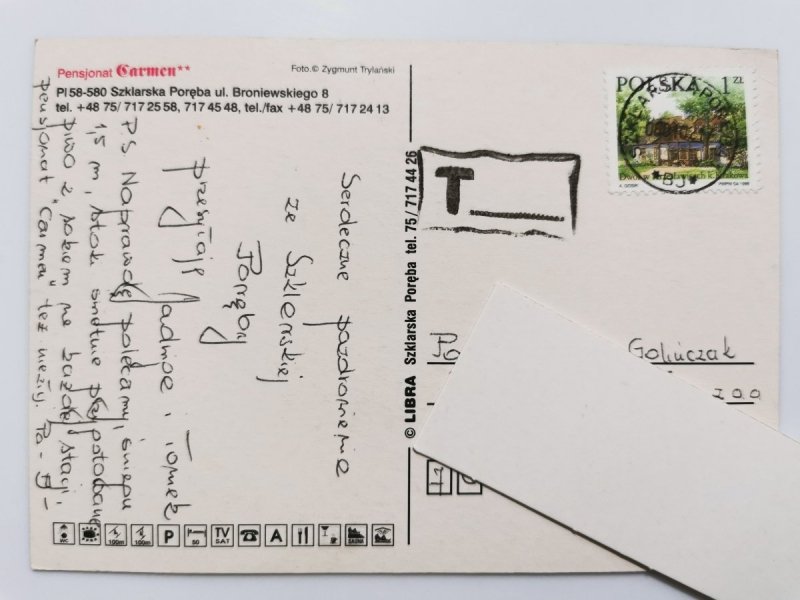 Pensjonat Carmen**
Foto.© Zygmunt Trylański
Pl 58-580 Szklarska Poręba ul. Broniewskiego 8
tel. +48 75/ 717 25 58, 717 45 48, tel./fax +48 75/ 717 24 13
Serdeczne pozdrowienia
ze Szklarskiej
Poręby
przesyłają Jadwiga i Tomek
P.S. Naprawdę polecamy, śniegu
1,5 m, stoki świetnie przygotowane
piwo z sokiem na każdej stacji,
pensjonat "Carmen" też niezły. Pa - B -
© LIBRA Szklarska Poręba tel. 75/ 717 44 26
POLSKA 1 ZŁ
T
Golińczak
WC
100m
100m
P
50
TV
SAT
A
SAUNA